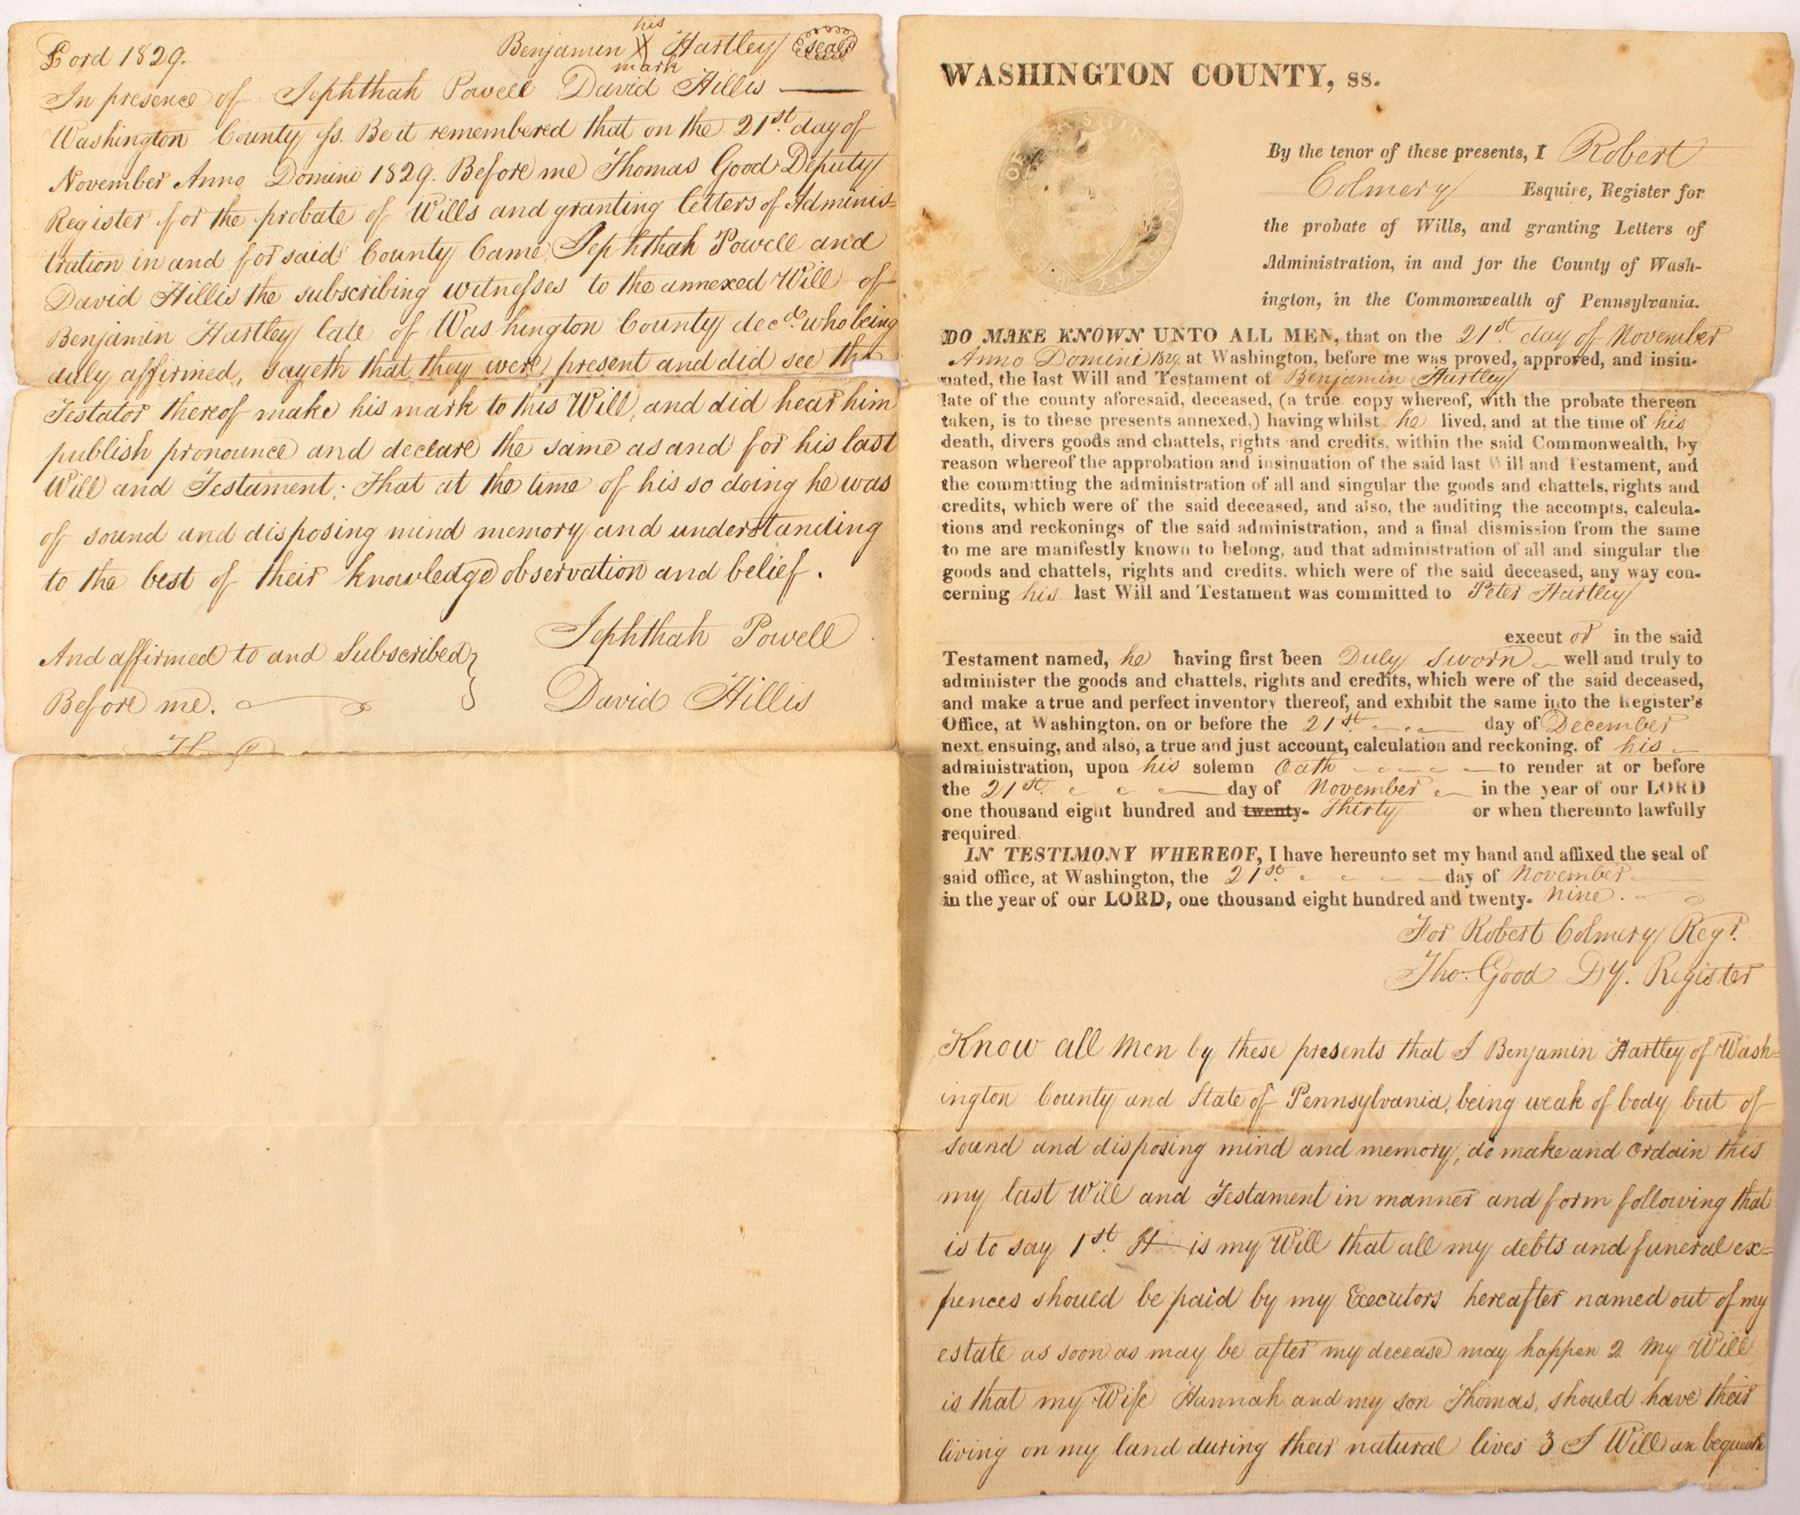 Lord 1829.
Benjamin his X mark Hartley seal
In presence of Jephthah Powell David Hillis
Washington County ss. Be it remembered that on the 21st. day of
November Anno Domini 1829. Before me Thomas Good Deputy
Register for the probate of Wills and granting letters of Adminis-
tration in and for said County Came Jephthah Powell and
David Hillis the subscribing witnesses to the annexed Will of
Benjamin Hartley late of Washington County decd. who being
duly affirmed, sayeth that they were present and did see the
Testator thereof make his mark to this Will, and did hear him
publish pronounce and declare the same as and for his last
Will and Testament; That at the time of his so doing he was
of sound and disposing mind memory and understanding
to the best of their knowledge observation and belief.
And affirmed to and Subscribed
Before me.
Jephthah Powell
David Hillis
WASHINGTON COUNTY, ss.
By the tenor of these presents, I Robert
Colmery Esquire, Register for
the probate of Wills, and granting Letters of
Administration, in and for the County of Wash-
ington, in the Commonwealth of Pennsylvania.
DO MAKE KNOWN UNTO ALL MEN, that on the 21st. day of November
Anno Domini 1829 at Washington, before me was proved, approved, and insin-
uated, the last Will and Testament of Benjamin Hartley
late of the county aforesaid, deceased, (a true copy whereof, with the probate thereon
taken, is to these presents annexed,) having whilst he lived, and at the time of his
death, divers goods and chattels, rights and credits, within the said Commonwealth, by
reason whereof the approbation and insinuation of the said last Will and Testament, and
the committing the administration of all and singular the goods and chattels, rights and
credits, which were of the said deceased, and also, the auditing the accompts, calcula-
tions and reckonings of the said administration, and a final dismission from the same
to me are manifestly known to belong, and that administration of all and singular the
goods and chattels, rights and credits, which were of the said deceased, any way con-
cerning his last Will and Testament was committed to Peter Hartley
execut or in the said
Testament named, he having first been Duly Sworn well and truly to
administer the goods and chattels, rights and credits, which were of the said deceased,
and make a true and perfect inventory thereof, and exhibit the same into the Register's
Office, at Washington, on or before the 21st day of December
next ensuing, and also, a true and just account, calculation and reckoning, of his
administration, upon his solemn Oath to render at or before
the 21st. day of November in the year of our LORD
one thousand eight hundred and twenty- Thirty or when thereunto lawfully
required.
IN TESTIMONY WHEREOF, I have hereunto set my hand and affixed the seal of
said office, at Washington, the 21st. day of November
in the year of our LORD, one thousand eight hundred and twenty- nine.
For Robert Colmery Regr.
Tho. Good Dy. Register
Know all Men by these presents that I Benjamin Hartley of Wash=
ington County and State of Pennsylvania, being weak of body but of
sound and disposing mind and memory, do make and ordain this
my last Will and Testament in manner and form following that
is to say 1st. It is my Will that all my debts and funeral ex=
pences should be paid by my Executors hereafter named out of my
estate as soon as may be after my decease may happen 2 My Will
is that my Wife Hannah and my son Thomas, should have their
living on my land during their natural lives 3 I Will an bequeath